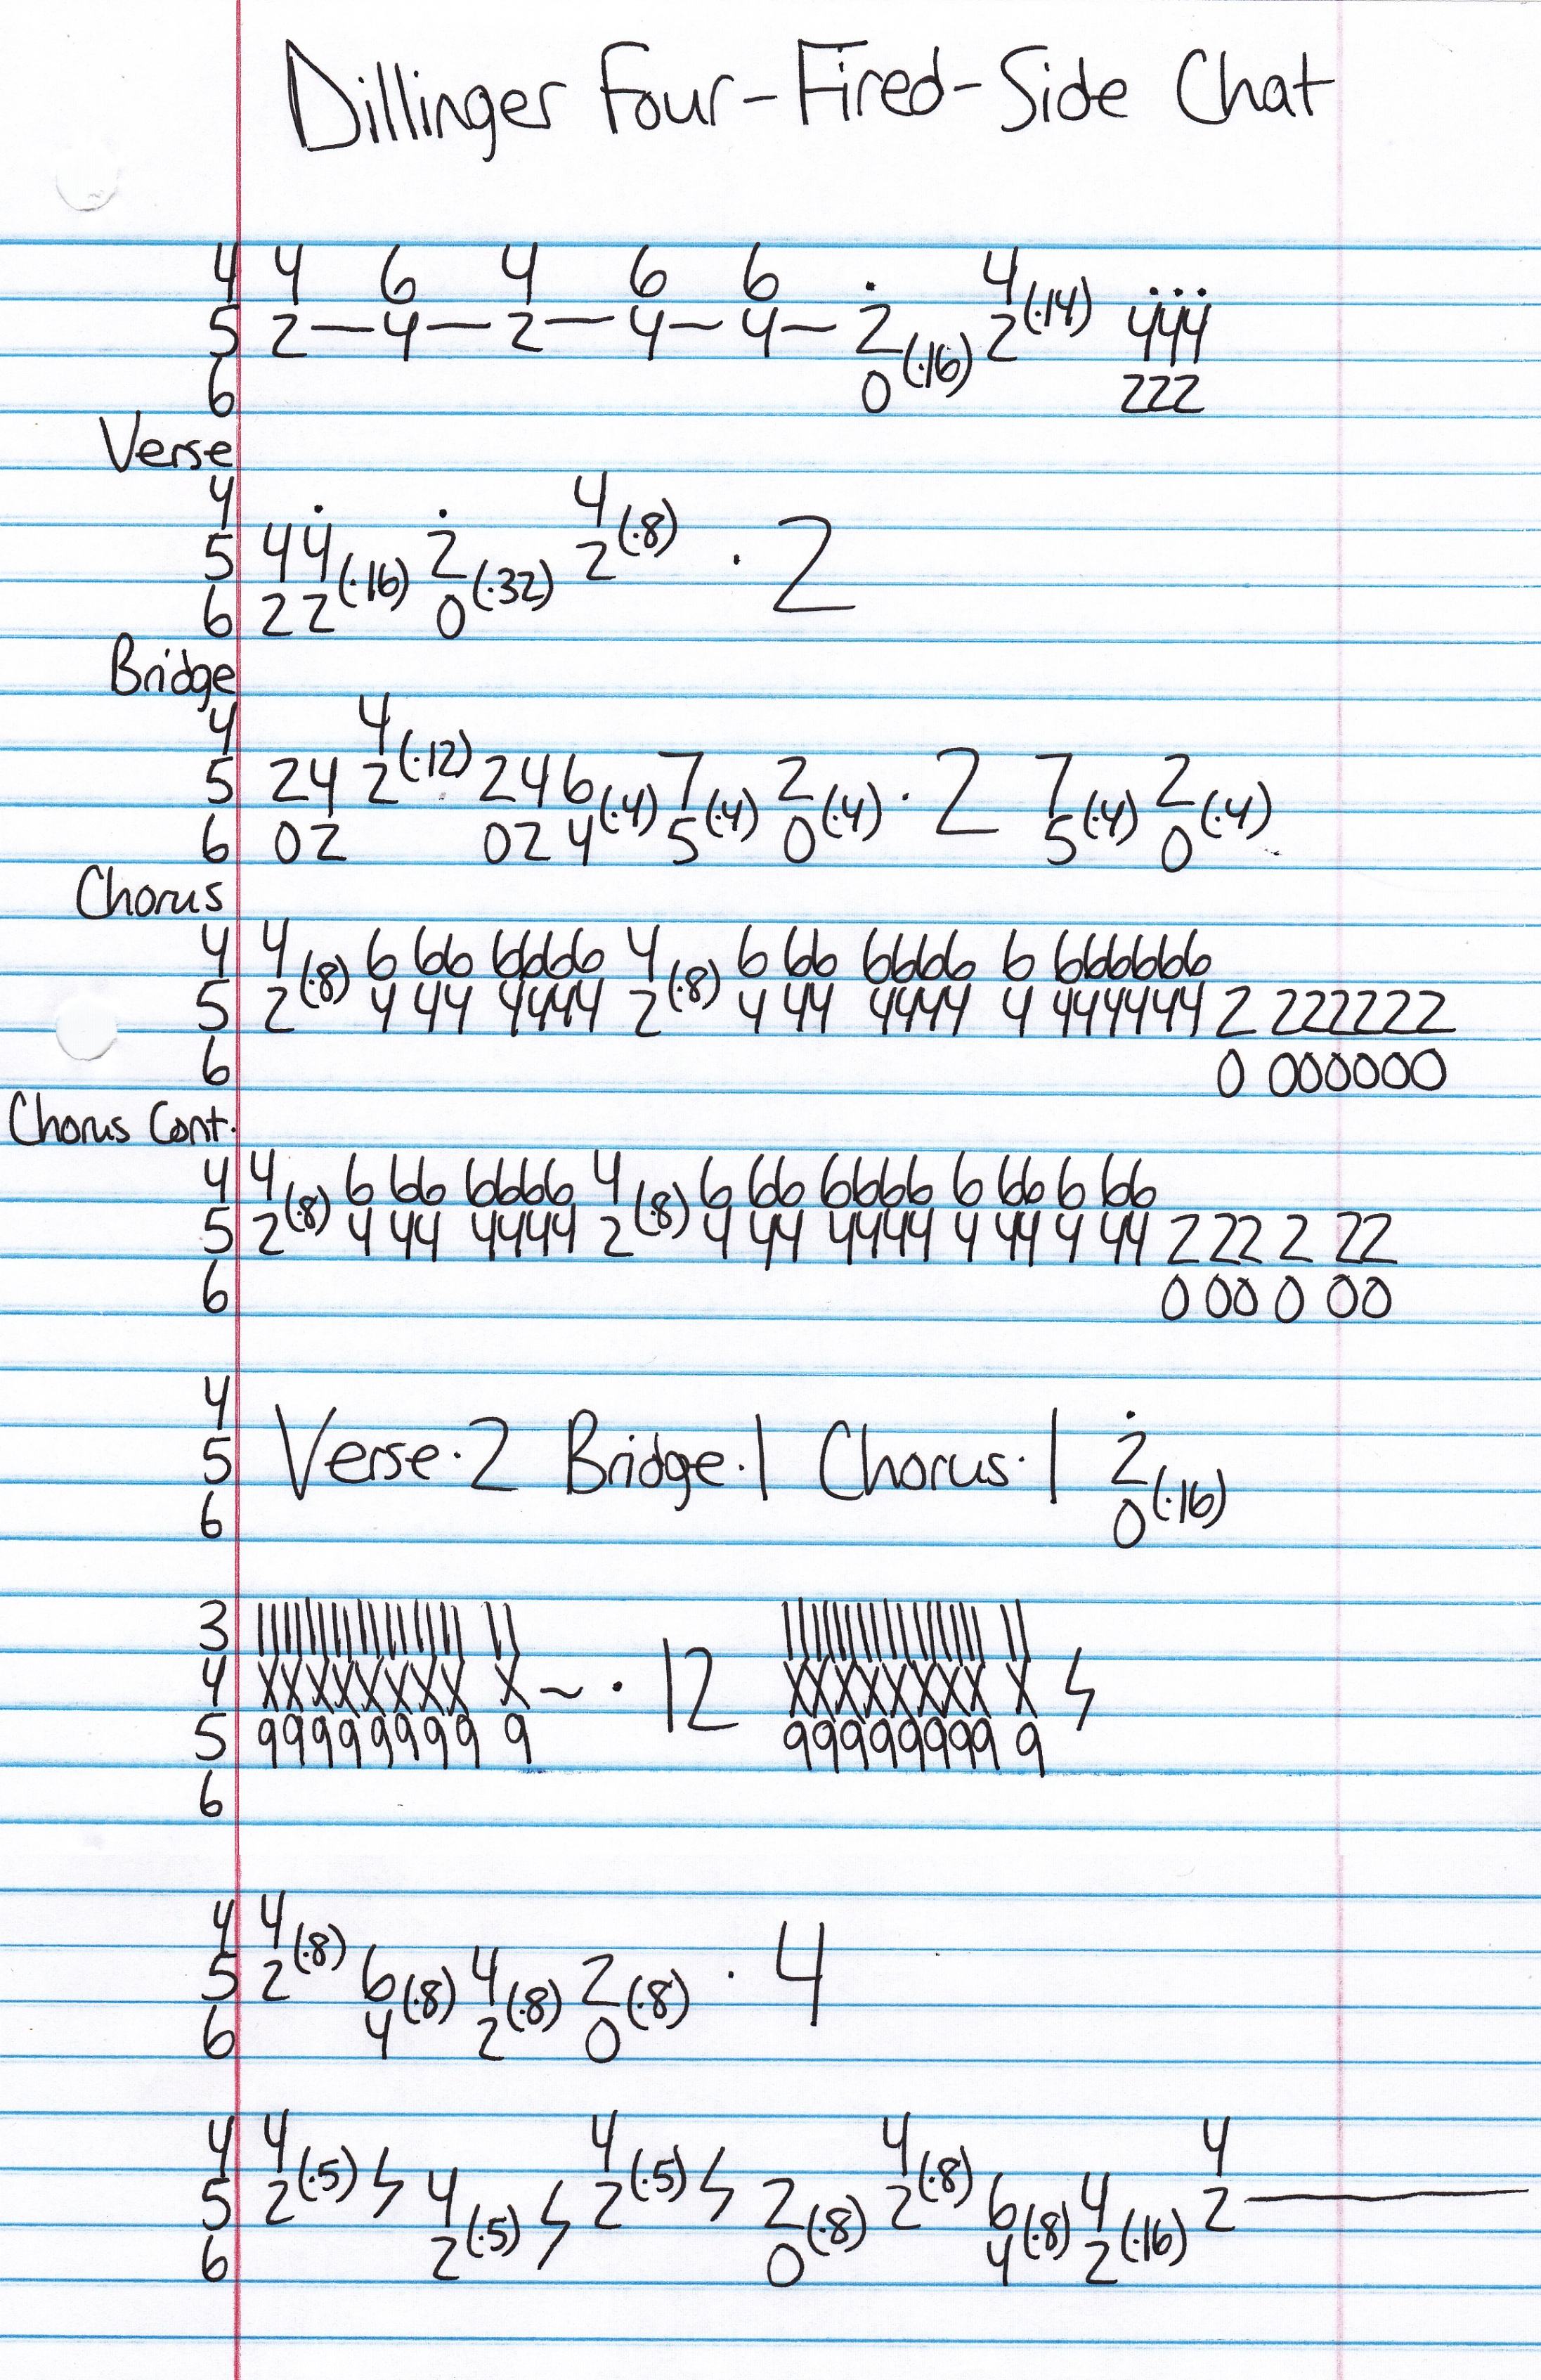 Dillinger Four-Fired-Side Chat
4 4 6 4 6 6 4(·14)
5 2—4—2—4—4—2(·16) 2 444
6 0 222
Verse
4 4(·8)
5 44(·16) 2(·32) 2 · 2
6 22 0
Bridge
4 4(·12)
5 24 2 246(·4) 7(·4) 2(·4) · 2 7(·4) 2(·4)
6 02 024 5 0 5 0
Chorus
4 4(·8) 6 66 6666 4(·8) 6 66 6666 6 666666
5 2 4 44 4444 2 4 44 4444 4 444444 2 222222
6 0 000000
Chorus Cont.
4 4(·8) 6 66 6666 4(·8) 6 66 6666 6 66 6 66
5 2 4 44 4444 2 4 44 4444 4 44 4 44 2 22 2 22
6 0 00 0 00
4
5 Verse·2 Bridge·1 Chorus·1 2(·16)
6 0
3 ||||||||||||||||| || ||||||||||||||||| ||
4 XXXXXXXX X~ · 12 XXXXXXXX X
5 99999999 9 99999999 9
6
4 4(·8)
5 2 6(·8) 4(·8) 2(·8) · 4
6 4 2 0
4 4(·5) 4(·5) 4(·8) 4
5 2 4(·5) 2 2(·8) 2 6(·8) 4(·16) 2—
6 2 0 4 2